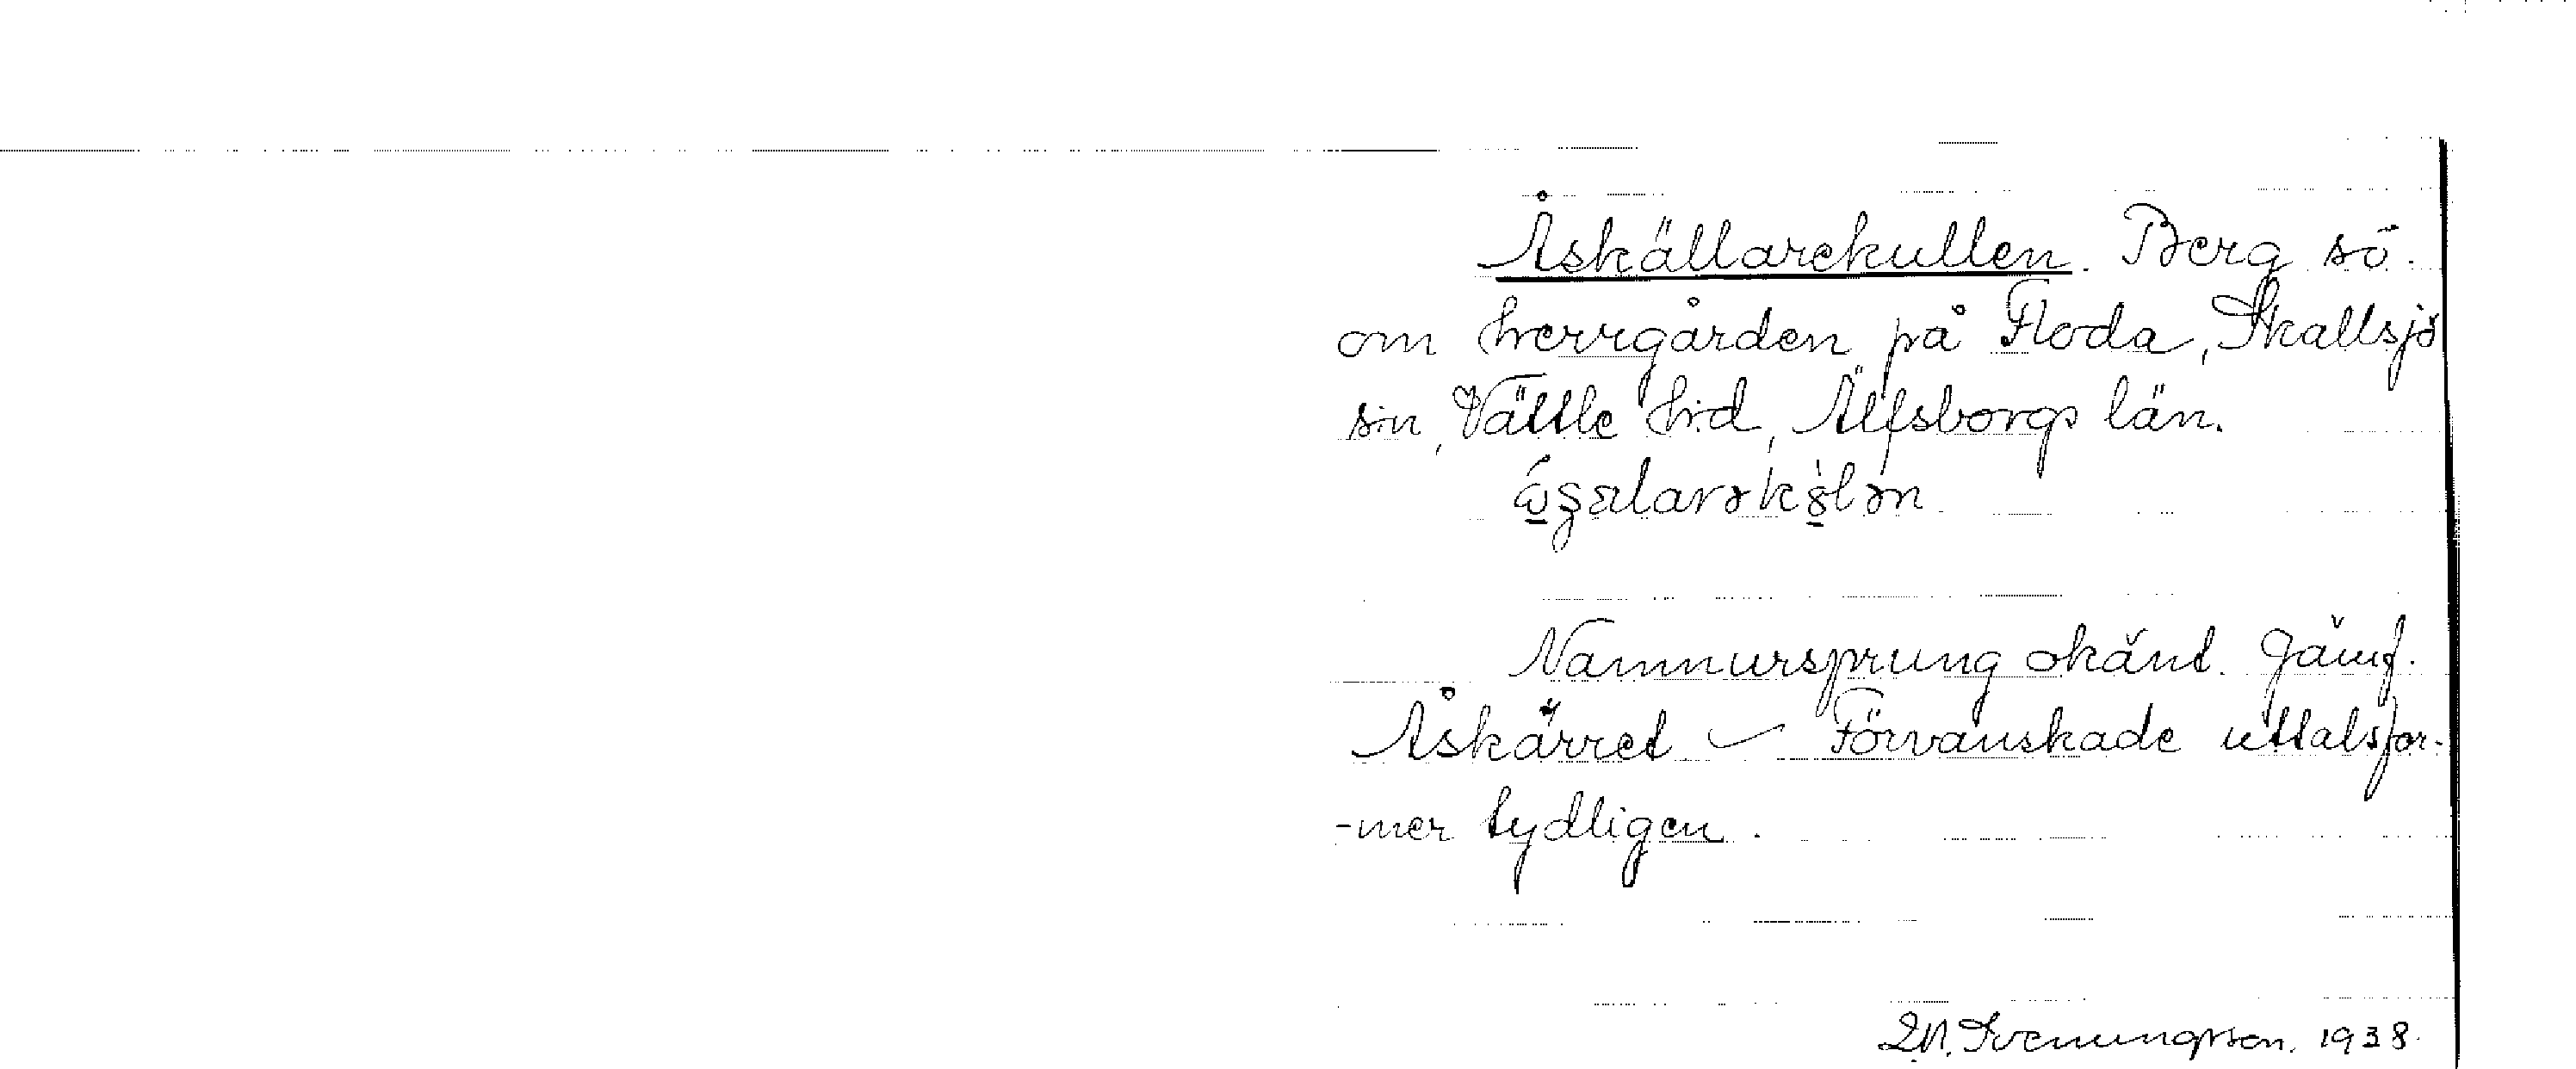 Åskällarekullen. Berg sö.
om herrgården på Floda, Skallsjö
sn, Vättle hd, Älfsborgs län.
Namnursprung okänt. Jämf.
Åskärret – Förvanskade uttalsfor-
-mer tydligen.
Svenungsson. 1938.